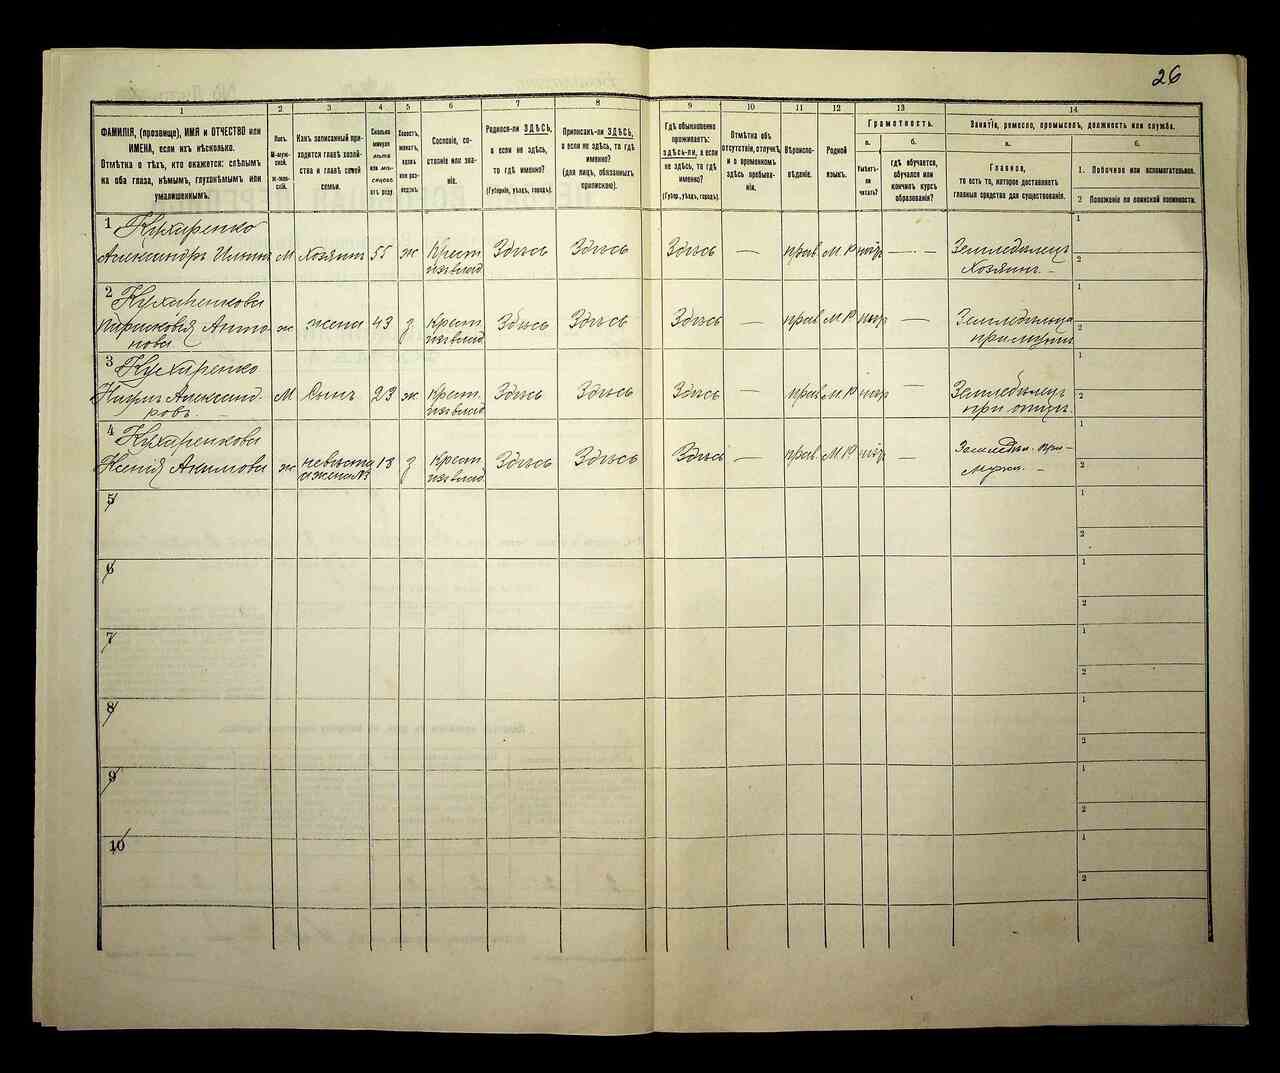 26
1
2.
3
4
5
6
7
8
9
10
11
12
13
14
ФАМИЛІЯ, (прозвище), ИМЯ и ОТЧЕСТВО или
ИМЕНА, если ихъ нѣсколько.
Отмѣтка о тѣхъ, кто окажется: слѣпымъ
на оба глаза, нѣмымъ, глухонѣмымъ или
умалишеннымъ.
Полъ.
М-муж-
ской.
ж-жен-
скій.
Какъ записанный при-
ходится главѣ хозяй-
ства и главѣ своей
семьи.
Сколько
минуло
лѣтъ
или мѣ-
сяцевъ
отъ роду
Холостъ,
женатъ,
вдовъ
или раз-
веденъ.
Сословіе, со-
стояніе или зва-
ніе.
Родился-ли ЗДѢСЬ,
а если не здѣсь,
то гдѣ именно?
(Губернія, уѣздъ, городъ).
Приписанъ-ли ЗДѢСЬ,
а если не здѣсь, то гдѣ
именно?
(для лицъ, обязанныхъ
припискою).
Гдѣ обыкновенно
проживаетъ:
здѣсь-ли, а если
не здѣсь, то гдѣ
именно?
(Губер.,уѣздъ, городъ).
Отмѣтка объ
отсутствіи, отлучкѣ
и о временномъ
здѣсь пребыва-
ніи.
Вѣроиспо-
вѣданіе.
Родной
языкъ.
Грамотность.
а.
б.
Умѣетъ-
ли
читать?
гдѣ обучается,
обучался или
кончилъ курсъ
образованія?
Занятіе, ремесло, промыселъ, должность или служба.
а.
б.
Главное,
то есть то, которое доставляетъ
главныя средства для существованія.
1. Побочное или вспомогательное.
2 Положеніе по воинской повинности.
1 Кухаренко
Александръ М Хозяинъ 55 ж Крест Здѣсь Здѣсь Здѣсь — прав М. Р — Земледѣлецъ 1
изъ влад Хозяинъ — 2
2 Кухаренкова
Анто- ж жена 43 з Крест Здѣсь Здѣсь Здѣсь — прав М Р — 1
нова изъ влад при мужѣ 2
3 Кухаренко
Александ- М Сынъ 23 ж Крест Здѣсь Здѣсь Здѣсь — прав М. Р — Земледѣлецъ 1
ровъ. — изъ влад при отцѣ 2
4 Кухаренкова
Ксенія Акимова ж невѣстка Крест Здѣсь Здѣсь Здѣсь — прав М Р — при 1
изъ влад — 2
5 1
2
6 1
2
7 1
2
8 1
2
9 1
2
10 1
2